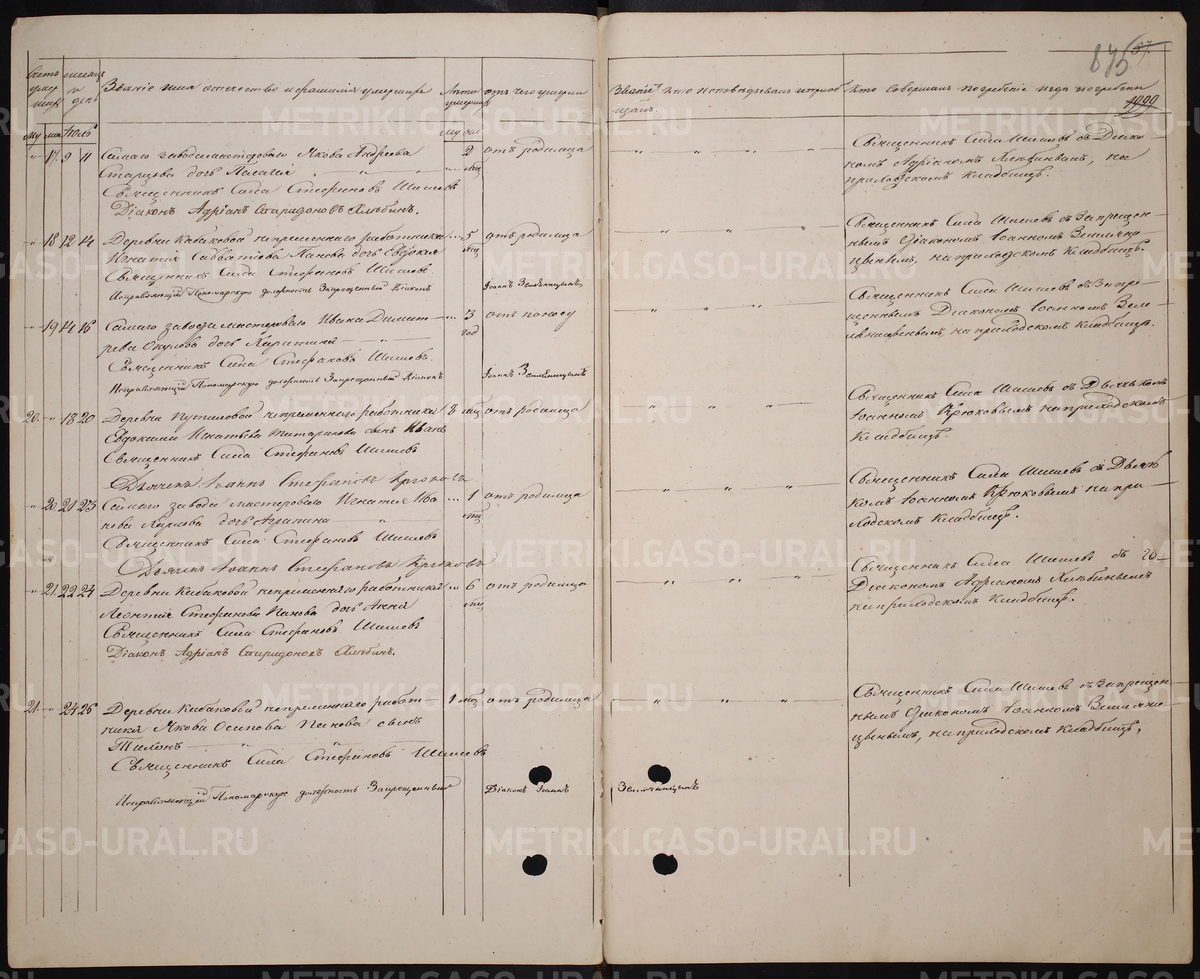 875
1999
Счетъ умершихъ
Месяцъ и день
Званіе имя отчество и фамилія умершихъ
Лета умершихъ
отъ чего умерли
Кто исповедывалъ и приобщалъ
Кто совершалъ погребеніе и где погребены
Іюль
17. 9 11 Самаго завода мастероваго Якова Андреева
Старцова дочь Пелагея
2 мц
отъ родимца
Священникъ Сила Стефановъ Шишевъ
Діаконъ Адріанъ Спиридоновъ Хлебинъ.
Священникъ Сила Шишевъ съ Діаконо
номъ Адріаномъ Хлебинымъ, на
приходскомъ кладбище.
18 12 14 Деревни Кабаковой непременнаго работника
Игнатія Савватіева Панова дочь Евдокія
5 мц
отъ родимца
Священникъ Сила Стефановъ Шишевъ
Исправляющій Пономарскую должность Запрещенный Діаконъ
Іоаннъ Земляницынъ
Священникъ Сила Шишевъ съ Запрещен-
нымъ Діакономъ Іоанномъ Земляни-
цынымъ, на приходскомъ кладбище.
19 14 16 Самаго завода мастероваго Ивана Димит-
рева Окулова дочь
3 год
отъ поносу
Священникъ Сила Стефановъ Шишевъ.
Исправляющій Пономарскую должность Запрещенный Діаконъ
Іоаннъ Земляницынъ
Священникъ Сила Шишевъ съ Запре-
щеннымъ Діакономъ Іоанномъ Зем-
ляницынымъ, на приходскомъ кладбище.
20. 18 20 Деревни Путиловой непременнаго работника
Евдокима Игнатьева сынъ Иванъ
8 мц
отъ родимца
Священникъ Сила Стефановъ Шишевъ
Дьячекъ Іоаннъ Стефановъ Крюковъ
Священникъ Сила Шишевъ съ Дьячкомъ
Іоанномъ Крюковымъ на приходскомъ
кладбище.
20. 21 23 Самаго завода мастероваго Игнатія Ива-
нова дочь Агрипина
1 мц
отъ родимца
Священникъ Сила Стефановъ Шишевъ
Дьячекъ Іоаннъ Стефановъ Крюковъ
Священникъ Сила Шишевъ съ Дьяч
комъ Іоанномъ Крюковымъ на при-
ходскомъ кладбище.
21. 22 24 Деревни Кабаковой непременнаго работника
Леонтія Стефанова Панова дочь Анна
6 мц
отъ родимца
Священникъ Сила Стефановъ Шишевъ
Діаконъ Адріанъ Спиридоновъ Хлебинъ.
Священникъ Сила Шишевъ съ
Діакономъ Адріаномъ Хлебинымъ
на приходскомъ кладбище.
21. 24 26 Деревни Кабаковой непременнаго работ
ника Якова Осипова Панова сынъ
1 мц
отъ родимца
Священникъ Сила Стефановъ Шишевъ
Исправляющій Пономарскую должность Запрещенный
Діаконъ Іоаннъ
Земляницынъ
Священникъ Сила Шишевъ съ Запрещен-
нымъ Діакономъ Іоанномъ Земляни-
цынымъ, на приходскомъ кладбище,
METRIKI.GASO-URAL.RU